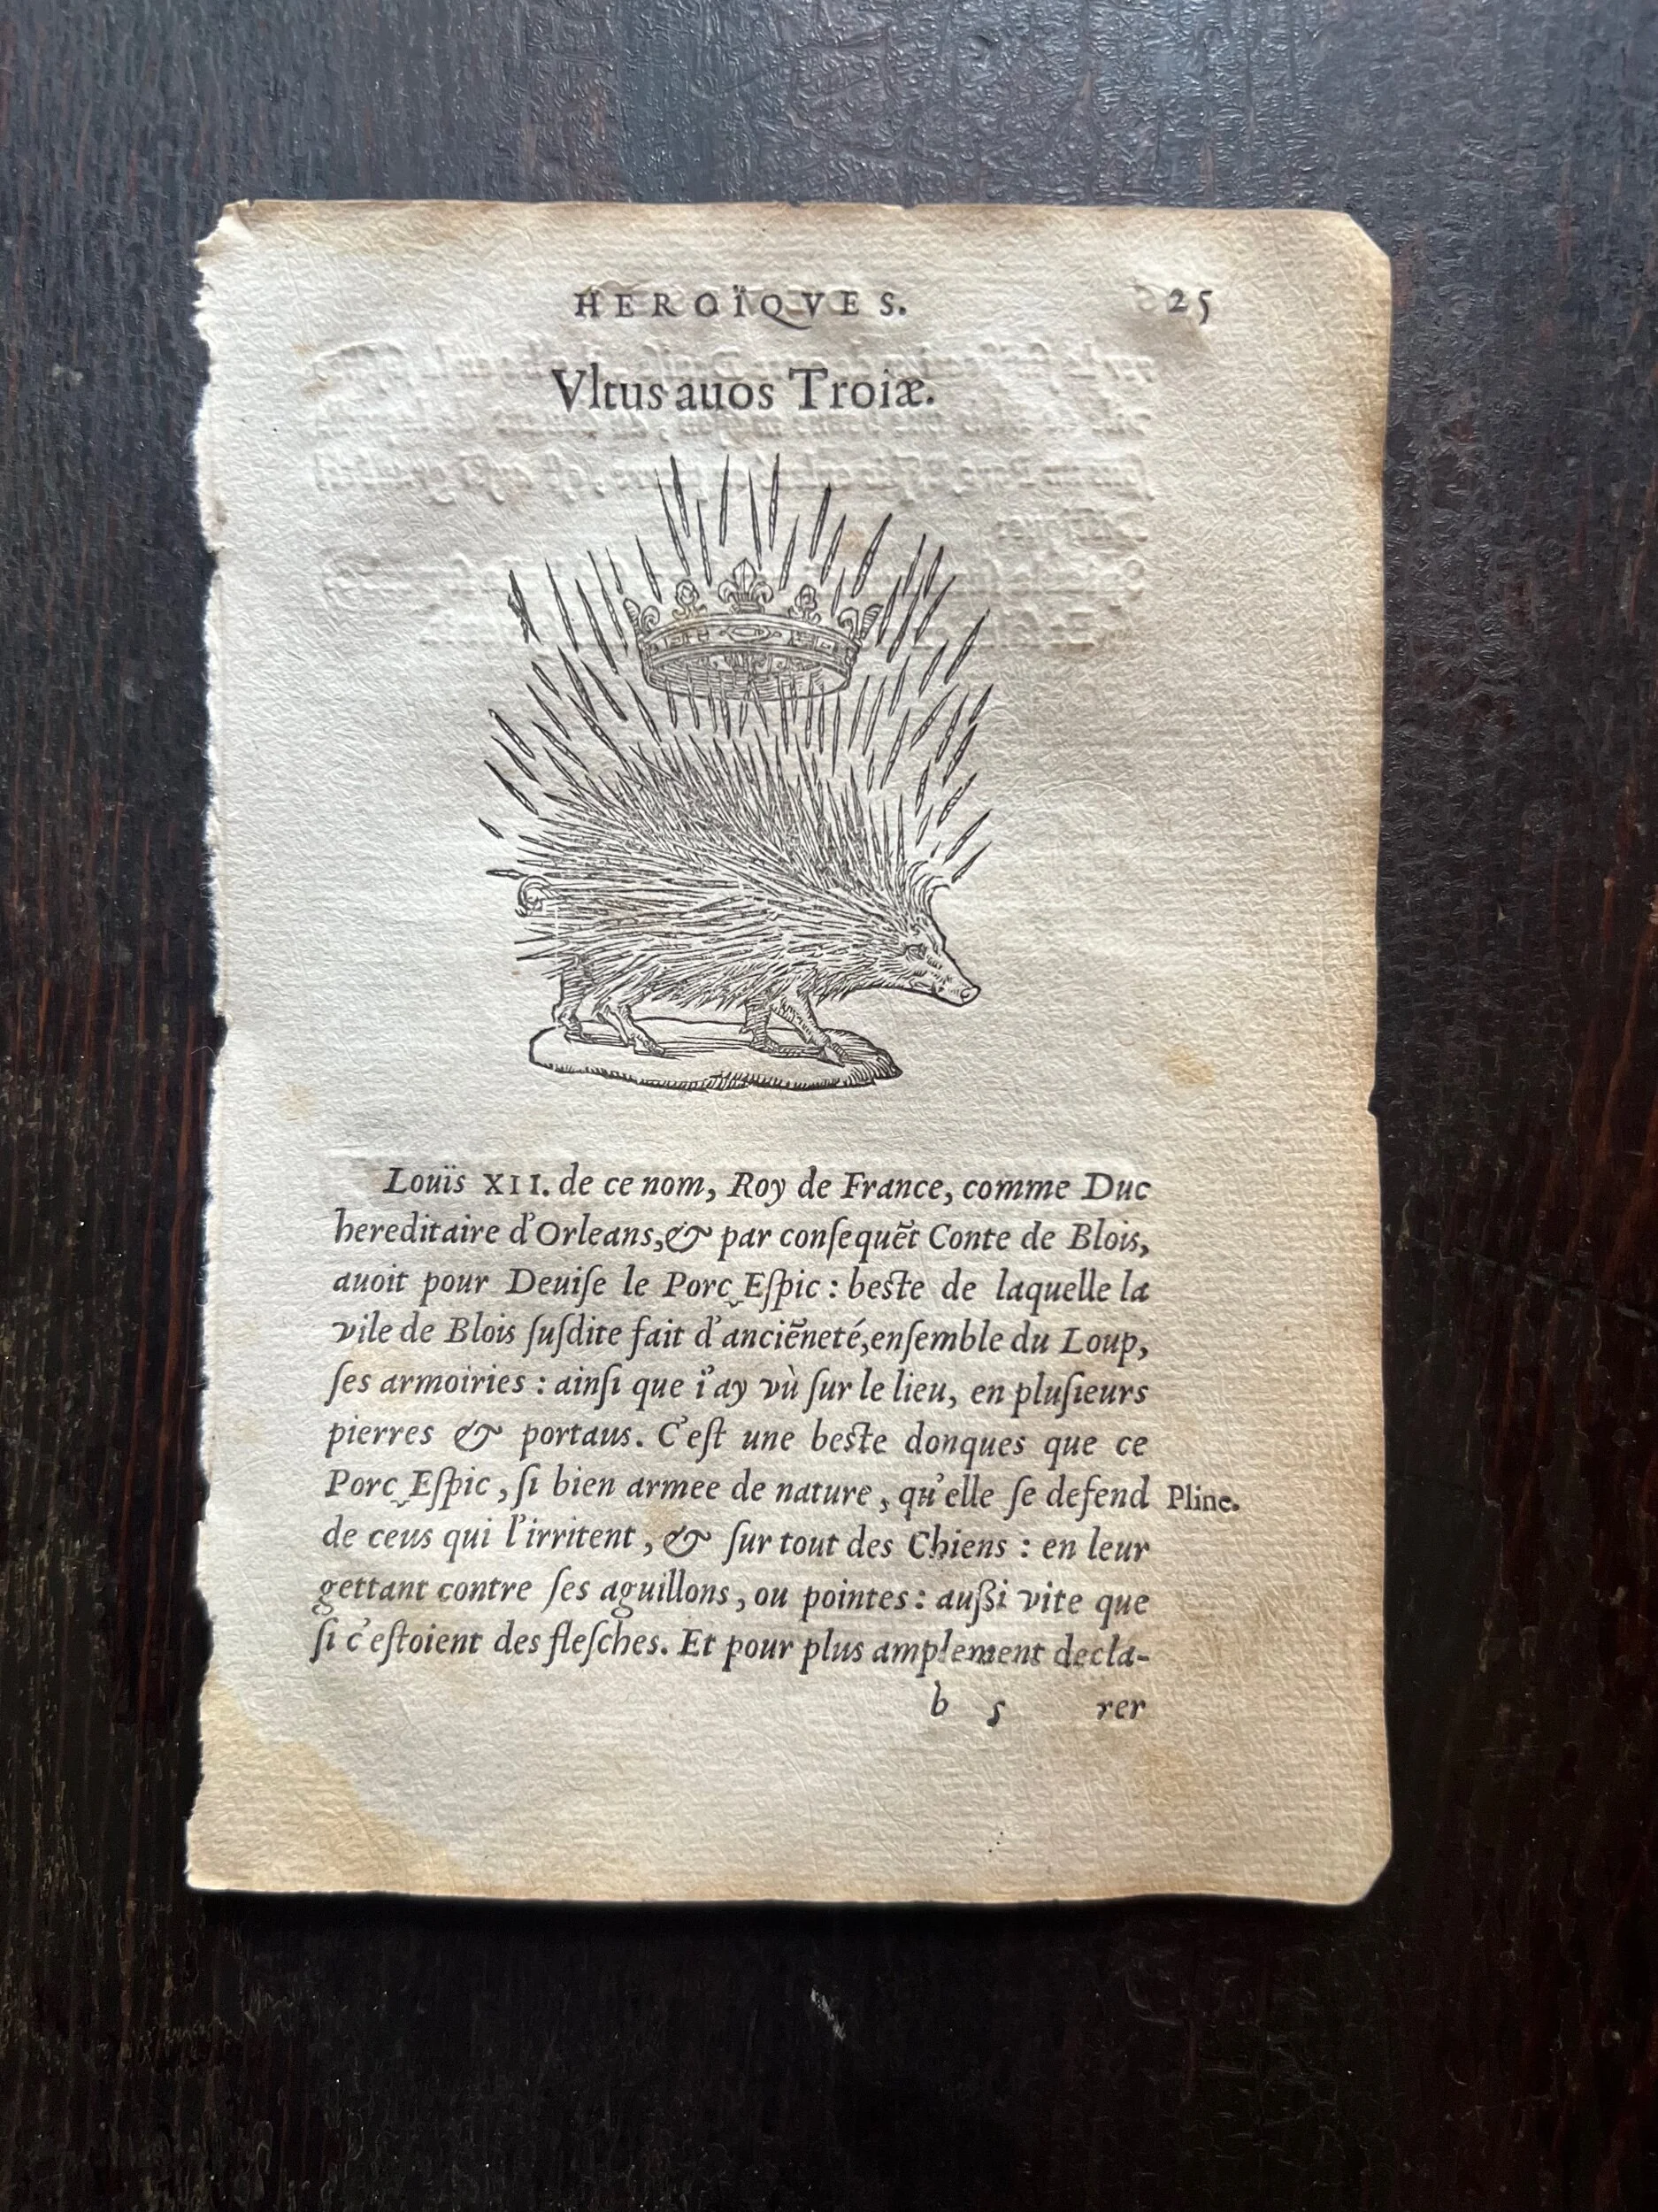 HEROÏQVES. 25
Vltus auos Troiæ.
Louïs XII. de ce nom, Roy de France, comme Duc
hereditaire d'Orleans, & par conſequẽt Conte de Blois,
auoit pour Deuiſe le Porc‿Eſpic : beſte de laquelle la
vile de Blois ſuſdite fait d'anciẽneté, enſemble du Loup,
ſes armoiries : ainſi que i'ay vù ſur le lieu, en pluſieurs
pierres & portaus. C'eſt une beſte donques que ce
Porc‿Eſpic, ſi bien armee de nature, qu'elle ſe defend Pline.
de ceus qui l'irritent, & ſur tout des Chiens : en leur
gettant contre ſes aguillons, ou pointes : auſsi vite que
ſi c'eſtoient des fleſches. Et pour plus amplement decla-
b 5 rer